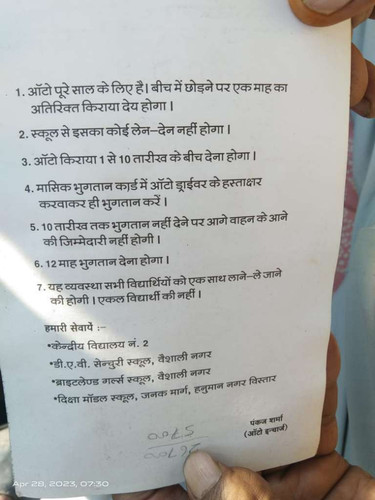 1. ऑटो पूरे साल के लिए है। बीच में छोड़ने पर एक माह का
अतिरिक्त किराया देय होगा ।
2. स्कूल से इसका कोई लेन–देन नहीं होगा ।
3. ऑटो किराया 1 से 10 तारीख के बीच देना होगा ।
4. मासिक भुगतान कार्ड में ऑटो ड्राईवर के हस्ताक्षर
करवाकर ही भुगतान करें ।
5. 10 तारीख तक भुगतान नहीं देने पर आगे वाहन के आने
की जिम्मेदारी नहीं होगी ।
6. 12 माह भुगतान देना होगा ।
7. यह व्यवस्था सभी विद्यार्थियों को एक साथ लाने–ले जाने
की होगी । एकल विद्यार्थी की नहीं ।
हमारी सेवायें :–
*केन्द्रीय विद्यालय नं. 2
*डी.ए.वी. सेन्चुरी स्कूल, वैशाली नगर
*ब्राइटलेण्ड गर्ल्स स्कूल, वैशाली नगर
*दिक्षा मॉडल स्कूल, जनक मार्ग, हनुमान नगर विस्तार
पंकज शर्मा
(ऑटो इन्चार्ज)
Apr 28, 2023, 07:30